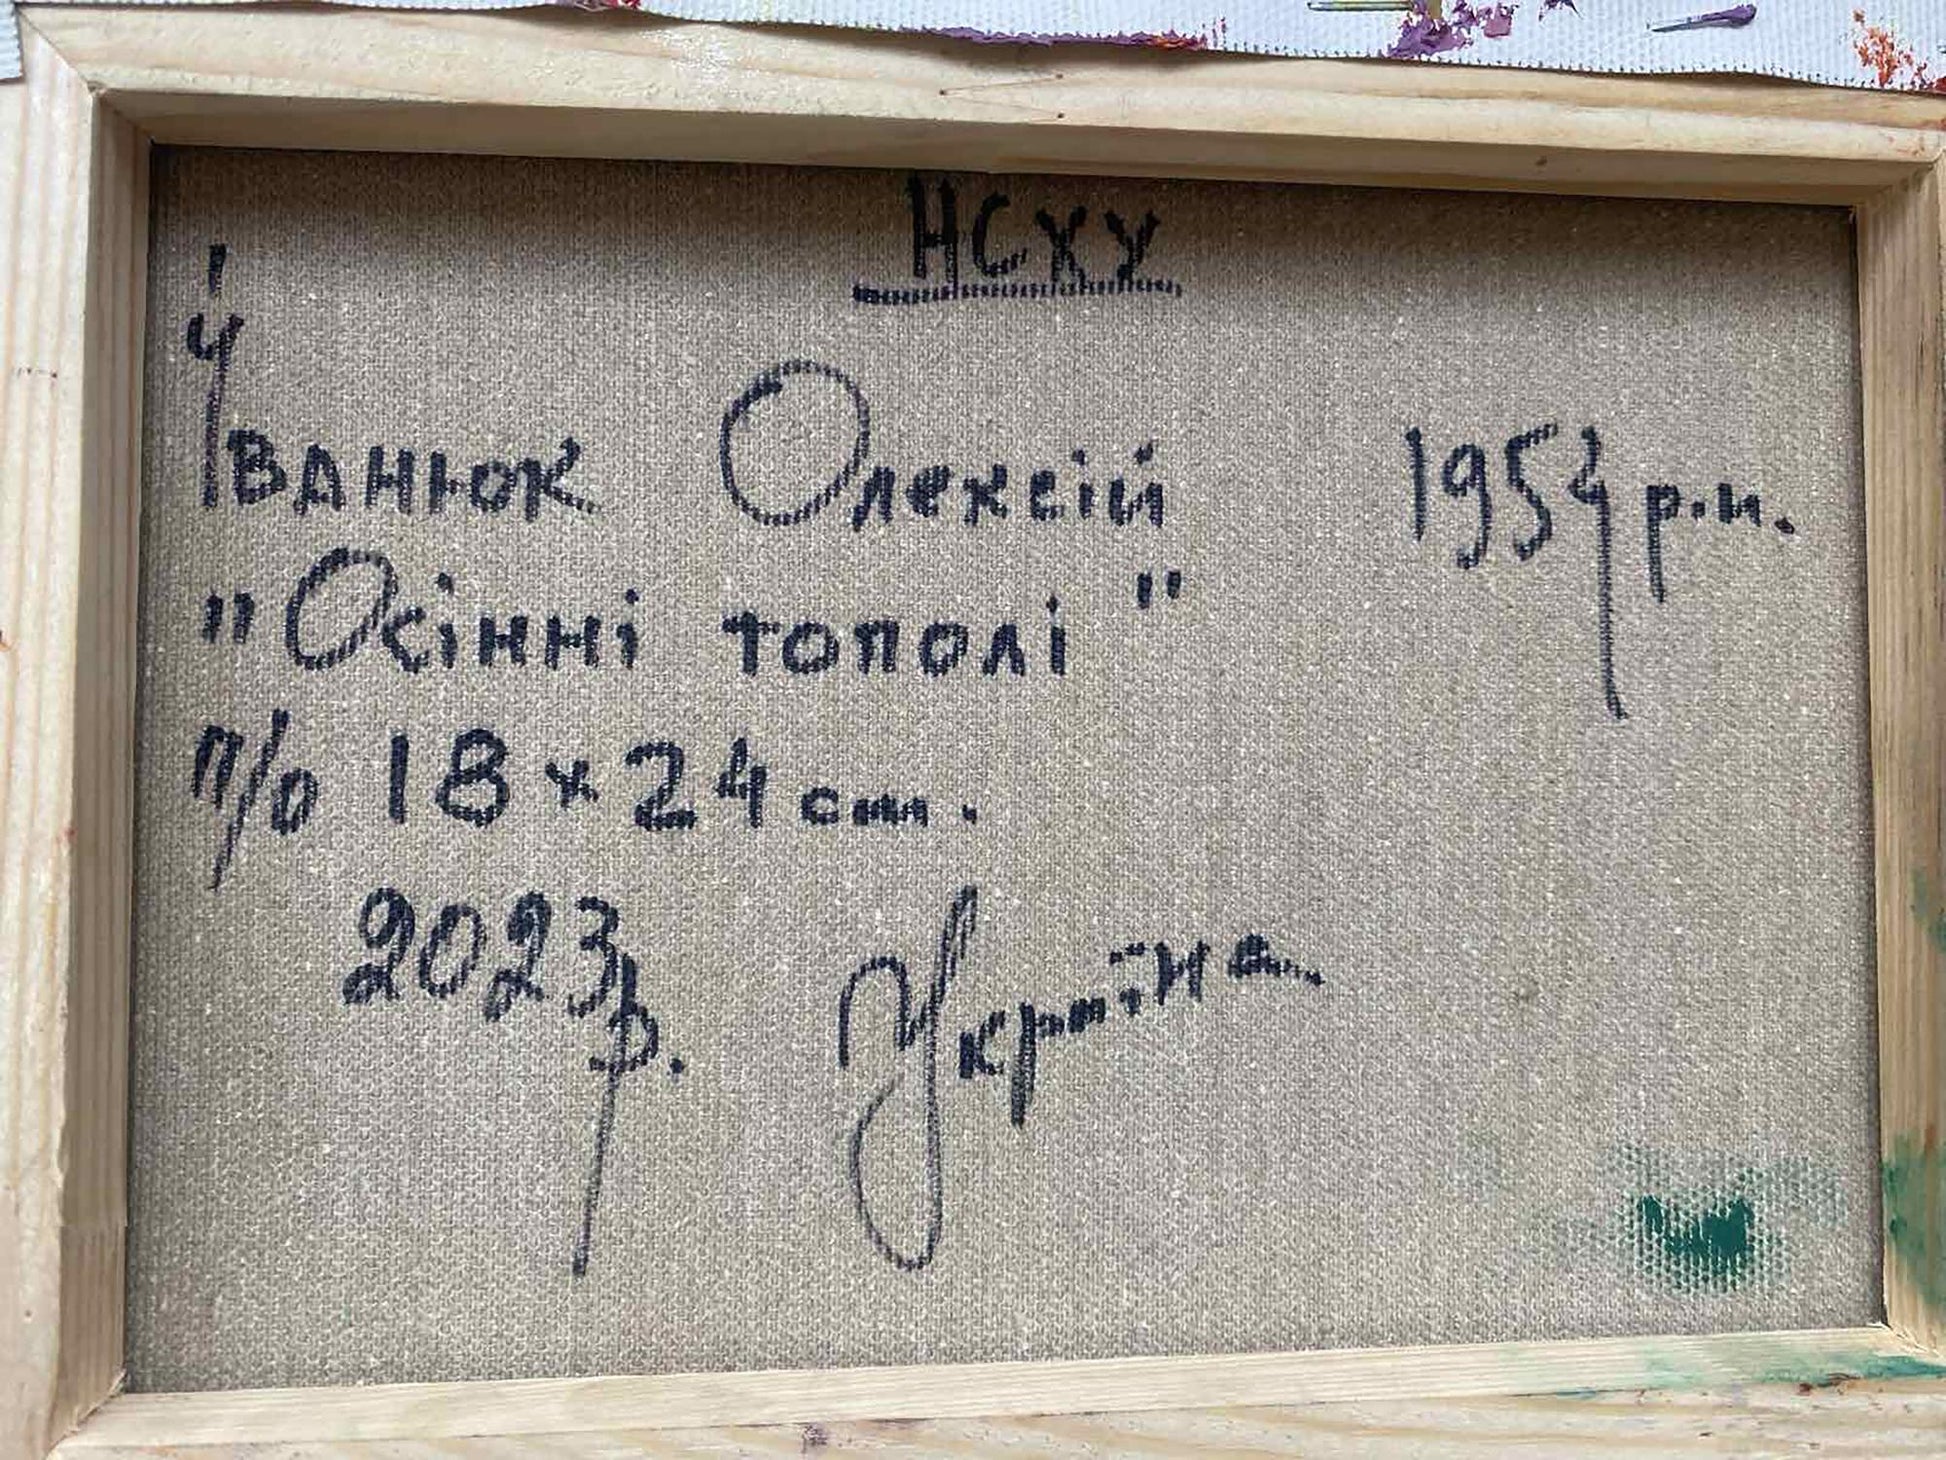 НСХУ
Іванюк Олексій 1954 р.н.
"Осінні тополі"
п/о 18 x 24 см.
2023р. Україна